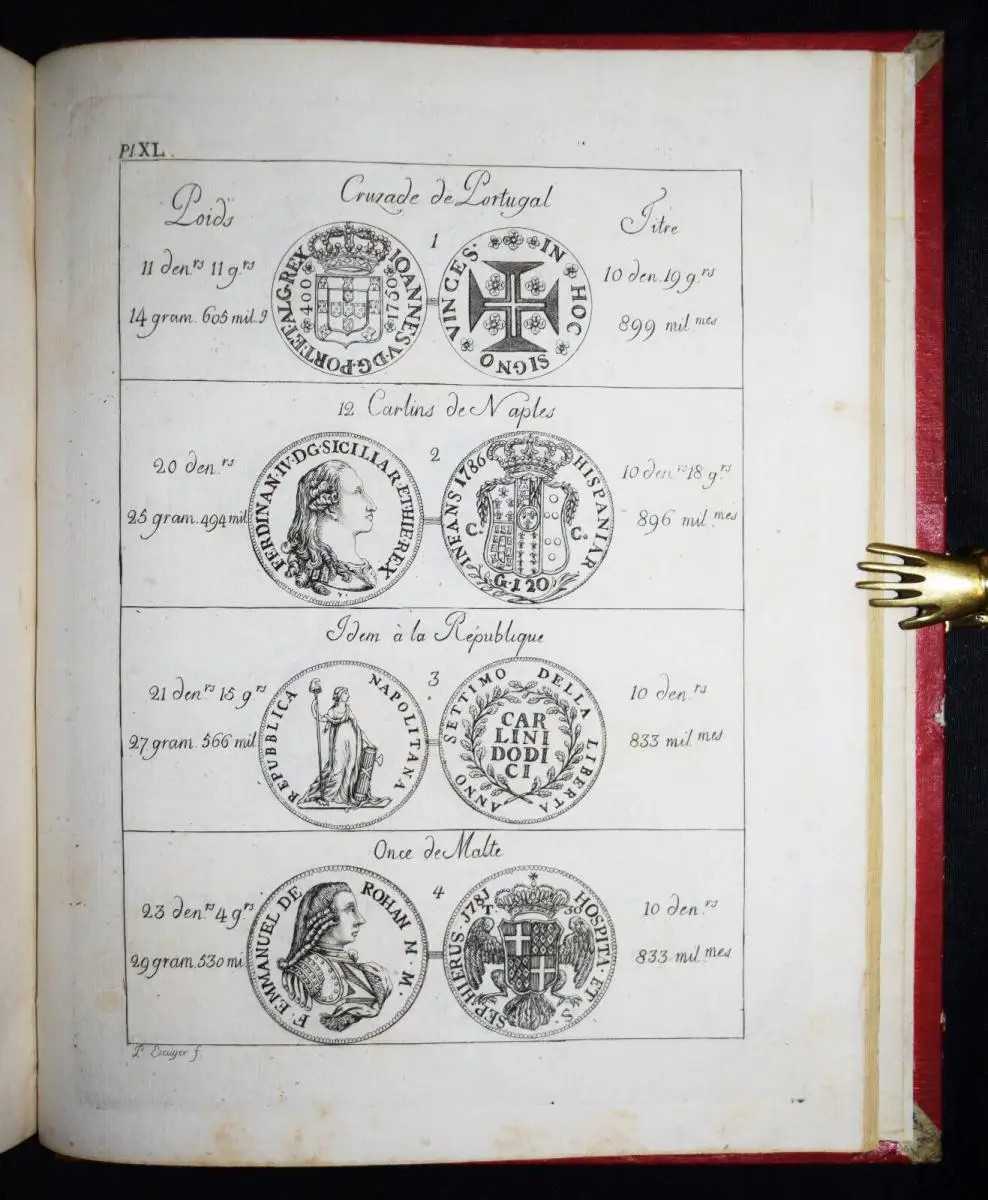 Pl.XL.
Cruzade de Portugal
Poids
Titre
1
11 den.rs 11 g.rs
14 gram. 605 mil.g
IOANNES.V.D.G.PORT.ET.ALG.REX
400
1750
IN HOC SIGNO VINCES.
10 den. 19 g.rs
899 mil.mes
12 Carlins de Naples
2
20 den.rs
25 gram. 494 mil
FERDINAN.IV.D.G.SICILIAR.ET.HIE.REX
HISPANIAR INFANS 1786
C. C.
G.120
10 den.rs 18 g.rs
896 mil.mes
Idem à la République
3
21 den.rs 15 g.rs
27 gram. 566 mil
REPUBBLICA NAPOLITANA
ANNO SETTIMO DELLA LIBERTA
CAR
LINI
DODI
CI
10 den.rs
833 mil.mes
Once de Malte
4
23 den.rs 4 g.rs
29 gram. 530 mi
F. EMMANUEL DE ROHAN M M.
HOSPITA. ET S. SEP. HIERUS. 1781
T. 30
10 den.rs
833 mil.mes
P. Escuyer f.